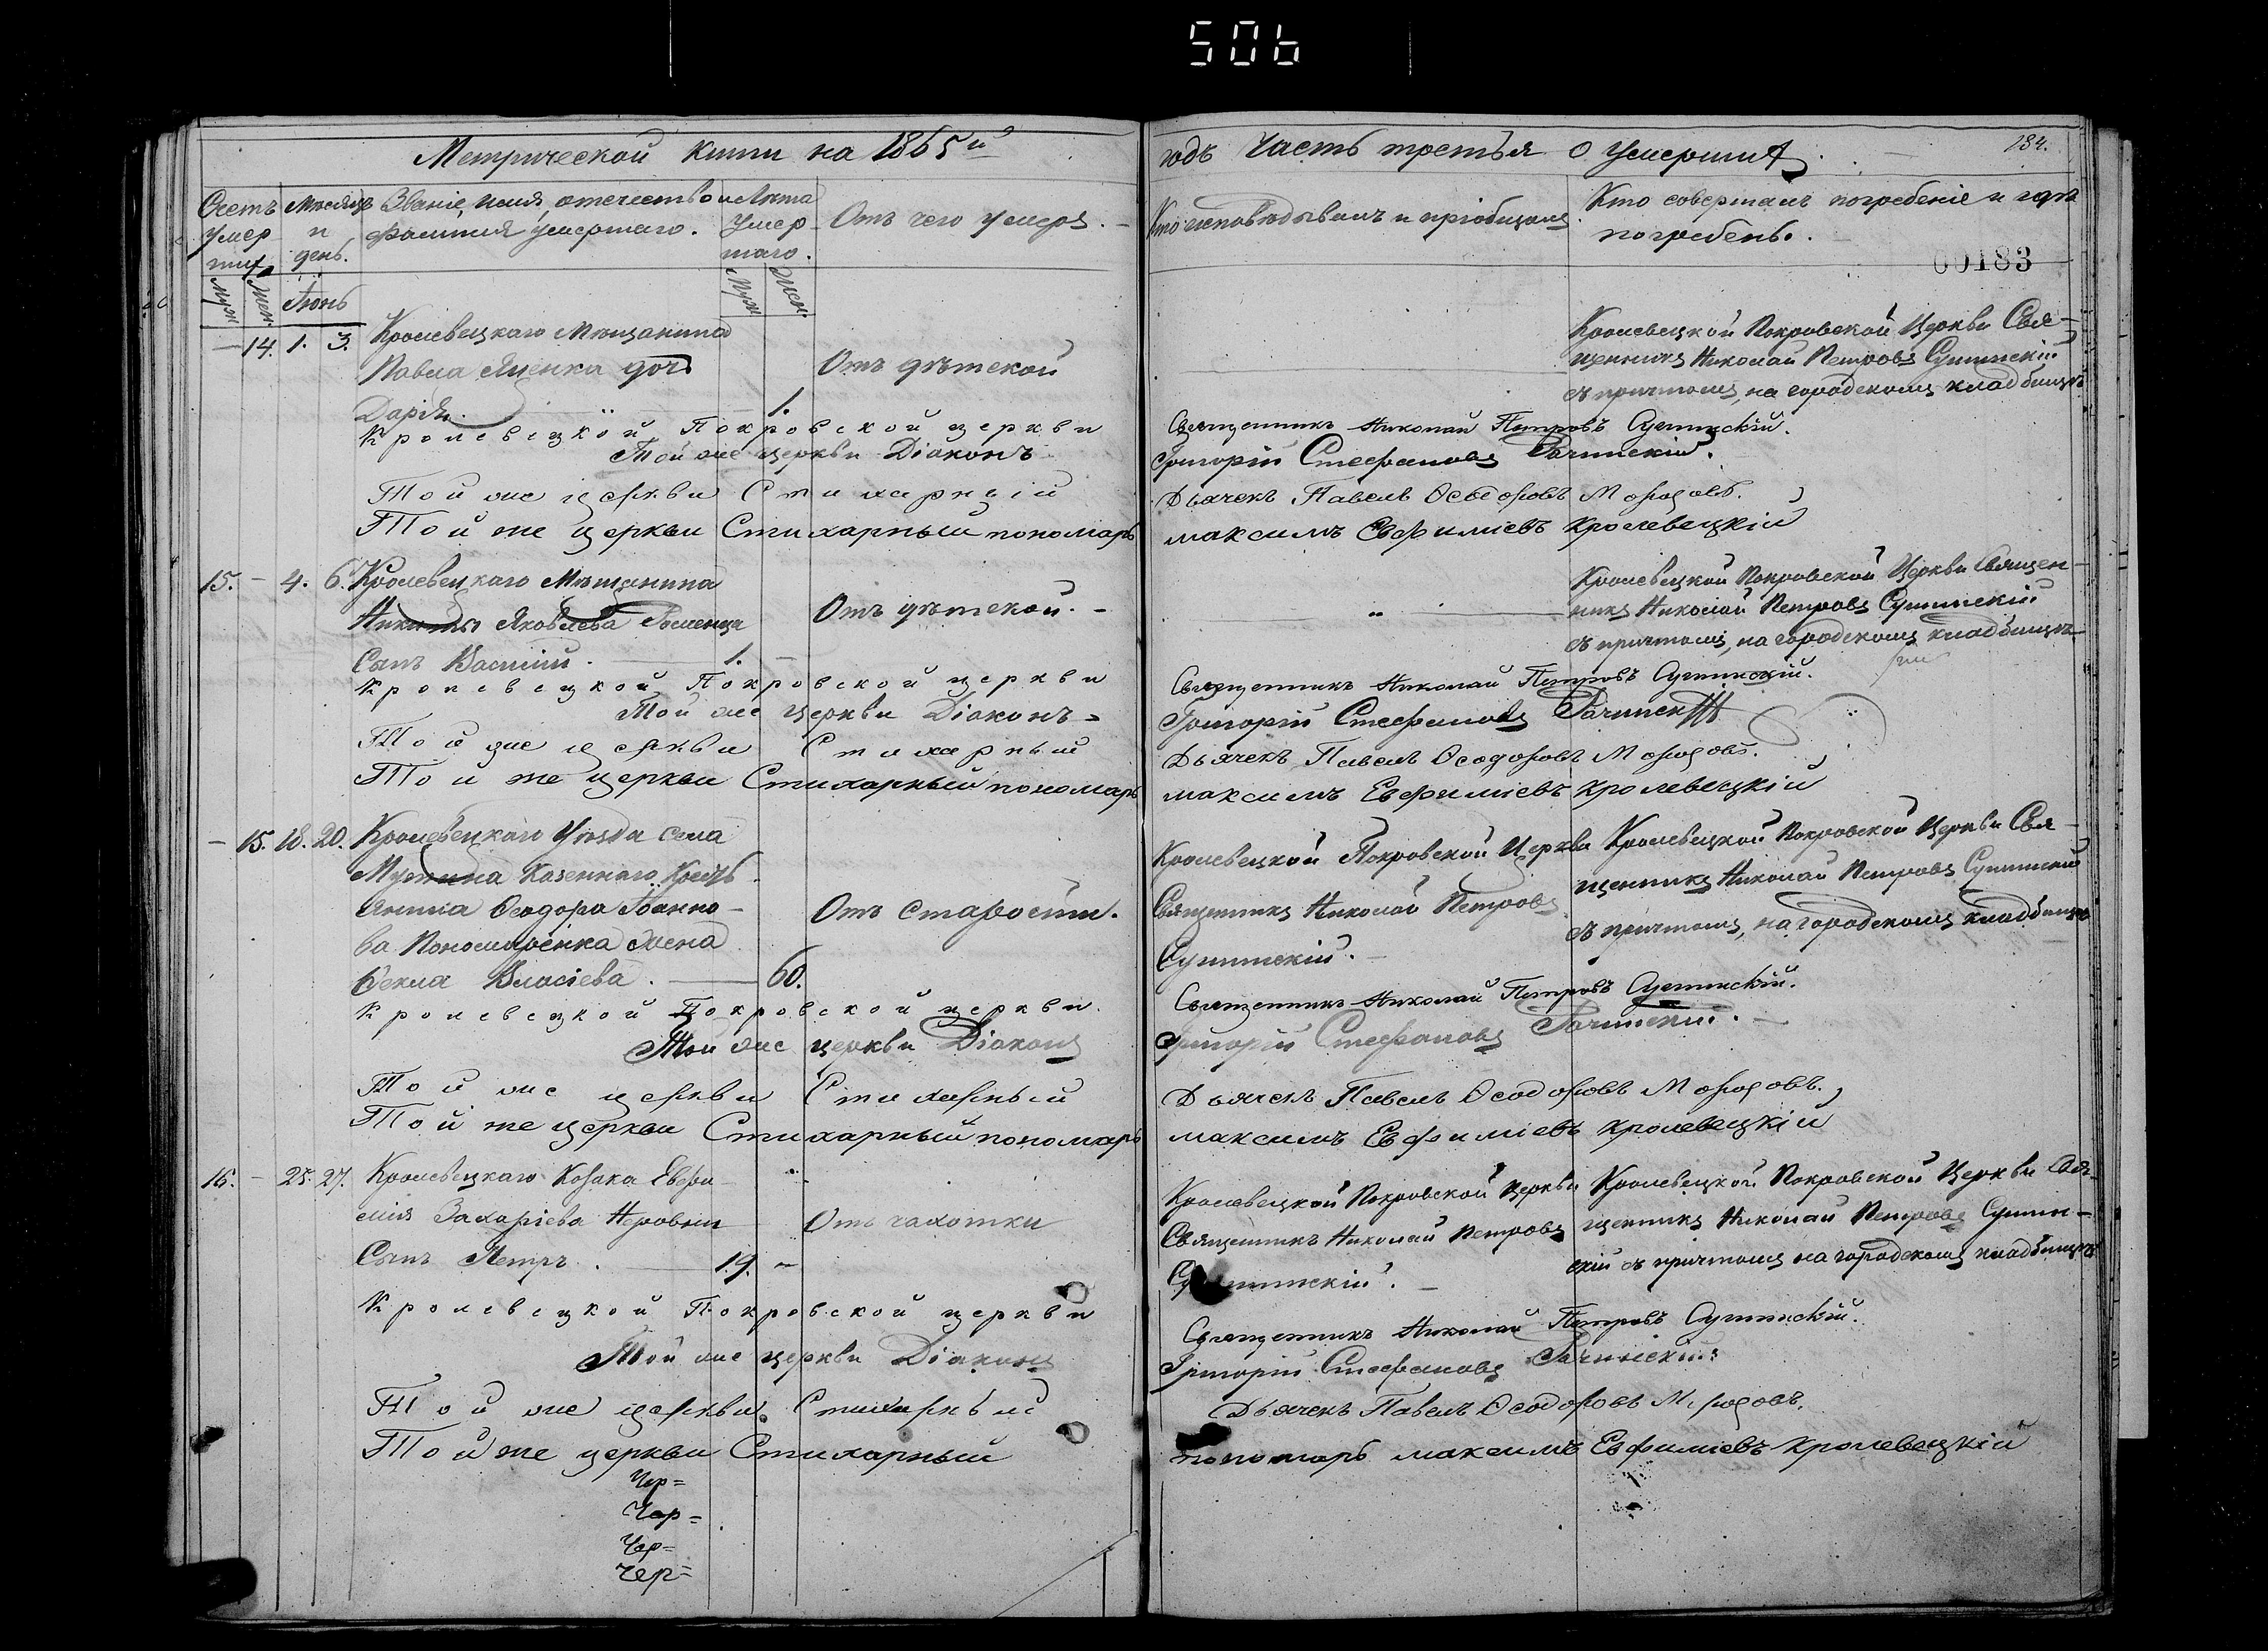 506
Метрической книги на 1865й
Счетъ умер шихъ
Мѣсяцъ и день.
Званіе, имя, отечество и фамилия умершаго.
Лѣта умер шаго.
Отъ чего умеръ.
Муж Жен.
Іюнь
Муж Жен.
14. 1. 3. Кролевецкаго Мѣщанина
Павла дочь
Дарія. 1.
Отъ дѣтской
Кролевецкой Покровской церкви
Той же церкви Діаконъ
Той же церкви Стихарный
Той же церкви Стихарный пономарь
15. - 4. 6. Кролевецкаго Мѣщанина
Никиты Яковлева
Сынъ Василій. 1. -
Отъ дѣтской. -
Кролевецкой Покровской церкви
Той же церкви Діаконъ =
Той же церкви Стихарный
Той же церкви Стихарный пономарь
- 15. 18. 20. Кролевецкаго Уѣзда села
Мутина Казеннаго Кресть
янина Ѳеодора Іоанно-
ва жена
Ѳекла Власіева. 60.
Отъ старости.
Кролевецкой Покровской церкви.
Той же церкви Діаконъ
Той же церкви Стихарный
Той же церкви Стихарный пономарь
16. - 25. 27. Кролевецкаго Козака Евфи-
мія Захаріева
Сынъ Петръ. 19. -
Отъ чахотки
Кролевецкой Покровской церкви
Той же церкви Діаконъ
Той же церкви Стихарный
Той же церкви Стихарный
Чер=
Чер=
Чер=
Чер=
годъ Часть третья о умершихъ.
184.
Кто исповѣдывалъ и пріобщалъ
Кто совершалъ погребеніе и гдѣ
погребенъ.
00183
Кролевецкой Покровской Церкви Свя-
щенникъ Николай Петровъ
съ причтомъ, на городскомъ кладбищѣ
Священникъ Николай Петровъ
Григорій Стефановъ Рачинскій.
Дьячекъ Павелъ Ѳеодоровъ
Максимъ Евфиміевъ Кролевецкій
Кролевецкой Покровской Церкви Священ-
никъ Николай Петровъ
съ причтомъ, на городскомъ кладбищѣ
Священникъ Николай Петровъ
Григорій Стефановъ Рачинскій
Дьячекъ Павелъ Ѳеодоровъ
Максимъ Евфиміевъ Кролевецкій
Кролевецкой Покровской Церкви
Священникъ Николай Петровъ
Кролевецкой Покровской Церкви Свя-
щенникъ Николай Петровъ
съ причтомъ, на городскомъ кладбищѣ
Священникъ Николай Петровъ
Григорій Стефановъ Рачинскій. -
Дьячекъ Павелъ Ѳеодоровъ
Максимъ Евфиміевъ Кролевецкій
Кролевецкой Покровской Церкви
Священникъ Николай Петровъ
Кролевецкой Покровской Церкви Свя-
щенникъ Николай Петровъ
скій съ причтомъ на городскомъ кладбищѣ
Священникъ Николай Петровъ
Григорій Стефановъ Рачинскій
Дьячекъ Павелъ Ѳеодоровъ
пономарь Максимъ Евфиміевъ Кролевецкій